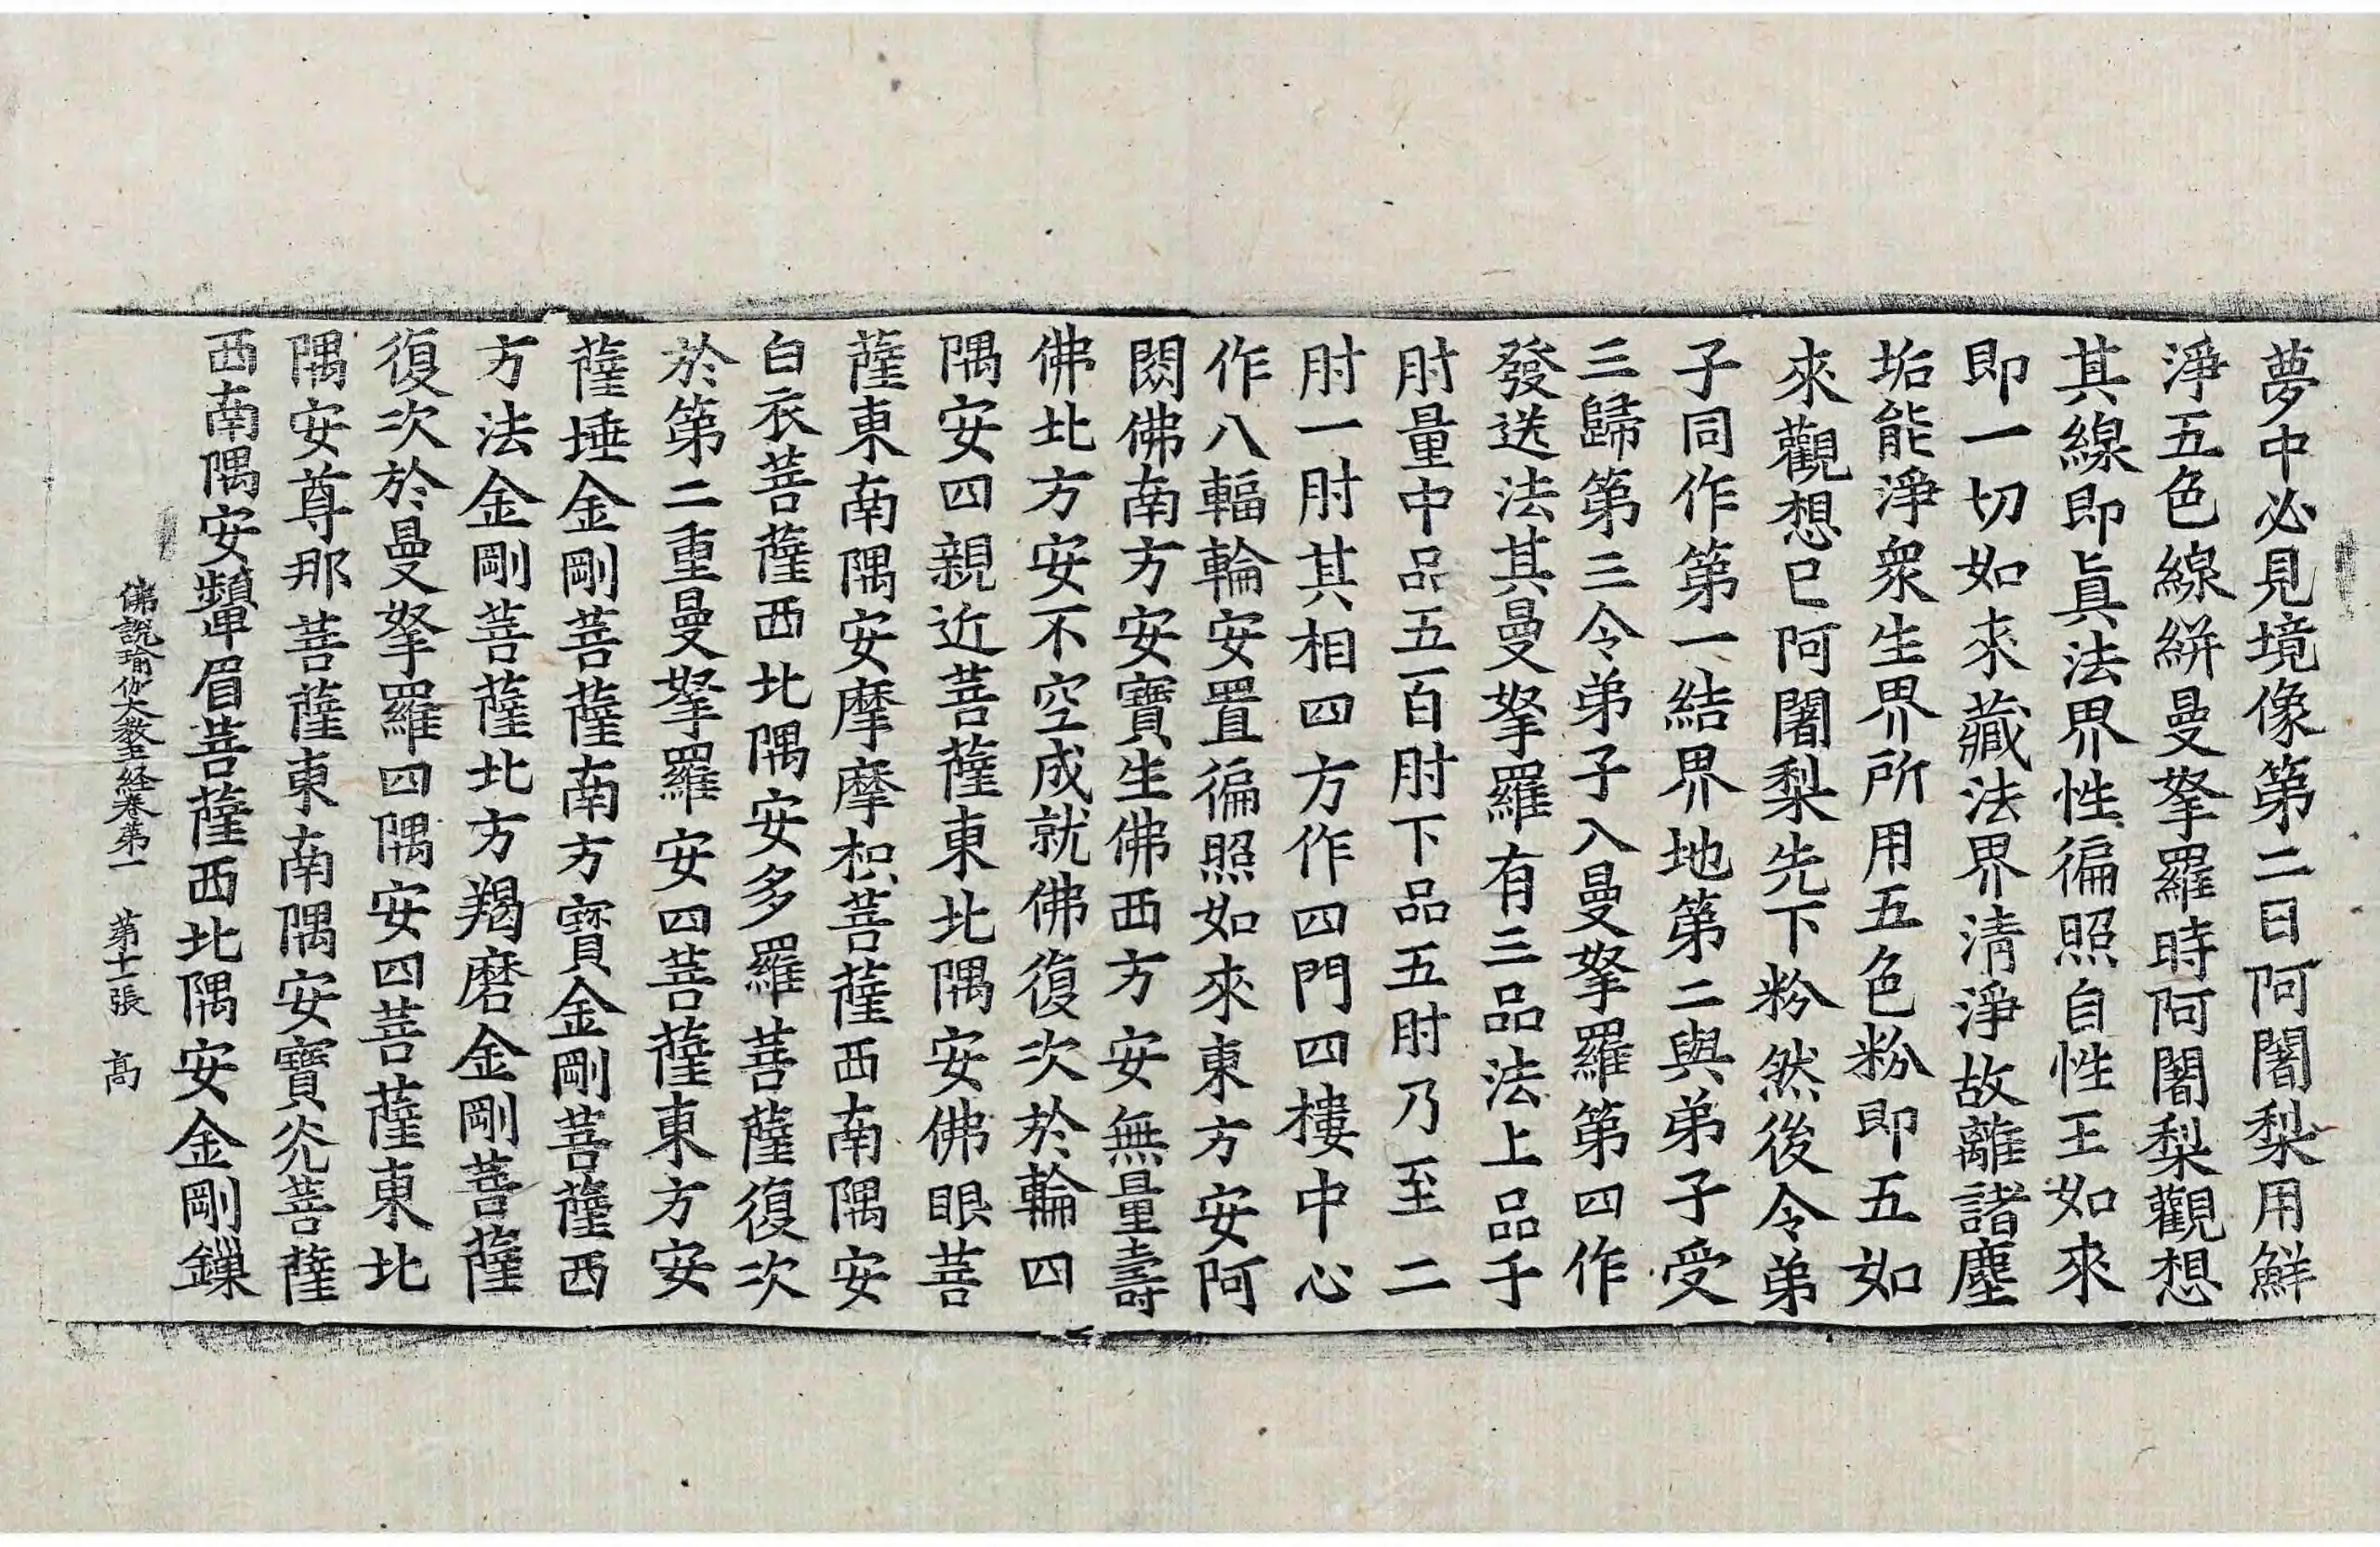 夢中必見境像第二日阿闍梨用鮮
淨五色線絣曼拏羅時阿闍梨觀想
其線即眞法界性徧照自性王如來
即一切如來藏法界清淨故離諸塵
垢能淨衆生界所用五色粉即五如
來觀想已阿闍梨先下粉然後令弟
子同作第一結界地第二與弟子受
三歸第三令弟子入曼拏羅第四作
發送法其曼拏羅有三品法上品千
肘量中品五百肘下品五肘乃至二
肘一肘其相四方作四門四樓中心
作八輻輪安置徧照如來東方安阿
閦佛南方安寶生佛西方安無量壽
佛北方安不空成就佛復次於輪四
隅安四親近菩薩東北隅安佛眼菩
薩東南隅安摩摩枳菩薩西南隅安
白衣菩薩西北隅安多羅菩薩復次
於第二重曼拏羅安四菩薩東方安
薩埵金剛菩薩南方寳金剛菩薩西
方法金剛菩薩北方羯磨金剛菩薩
復次於曼拏羅四隅安四菩薩東北
隅安尊那菩薩東南隅安寶光菩薩
西南隅安顰眉菩薩西北隅安金剛鏁
佛說瑜伽大教王経卷第一 第十一張 髙